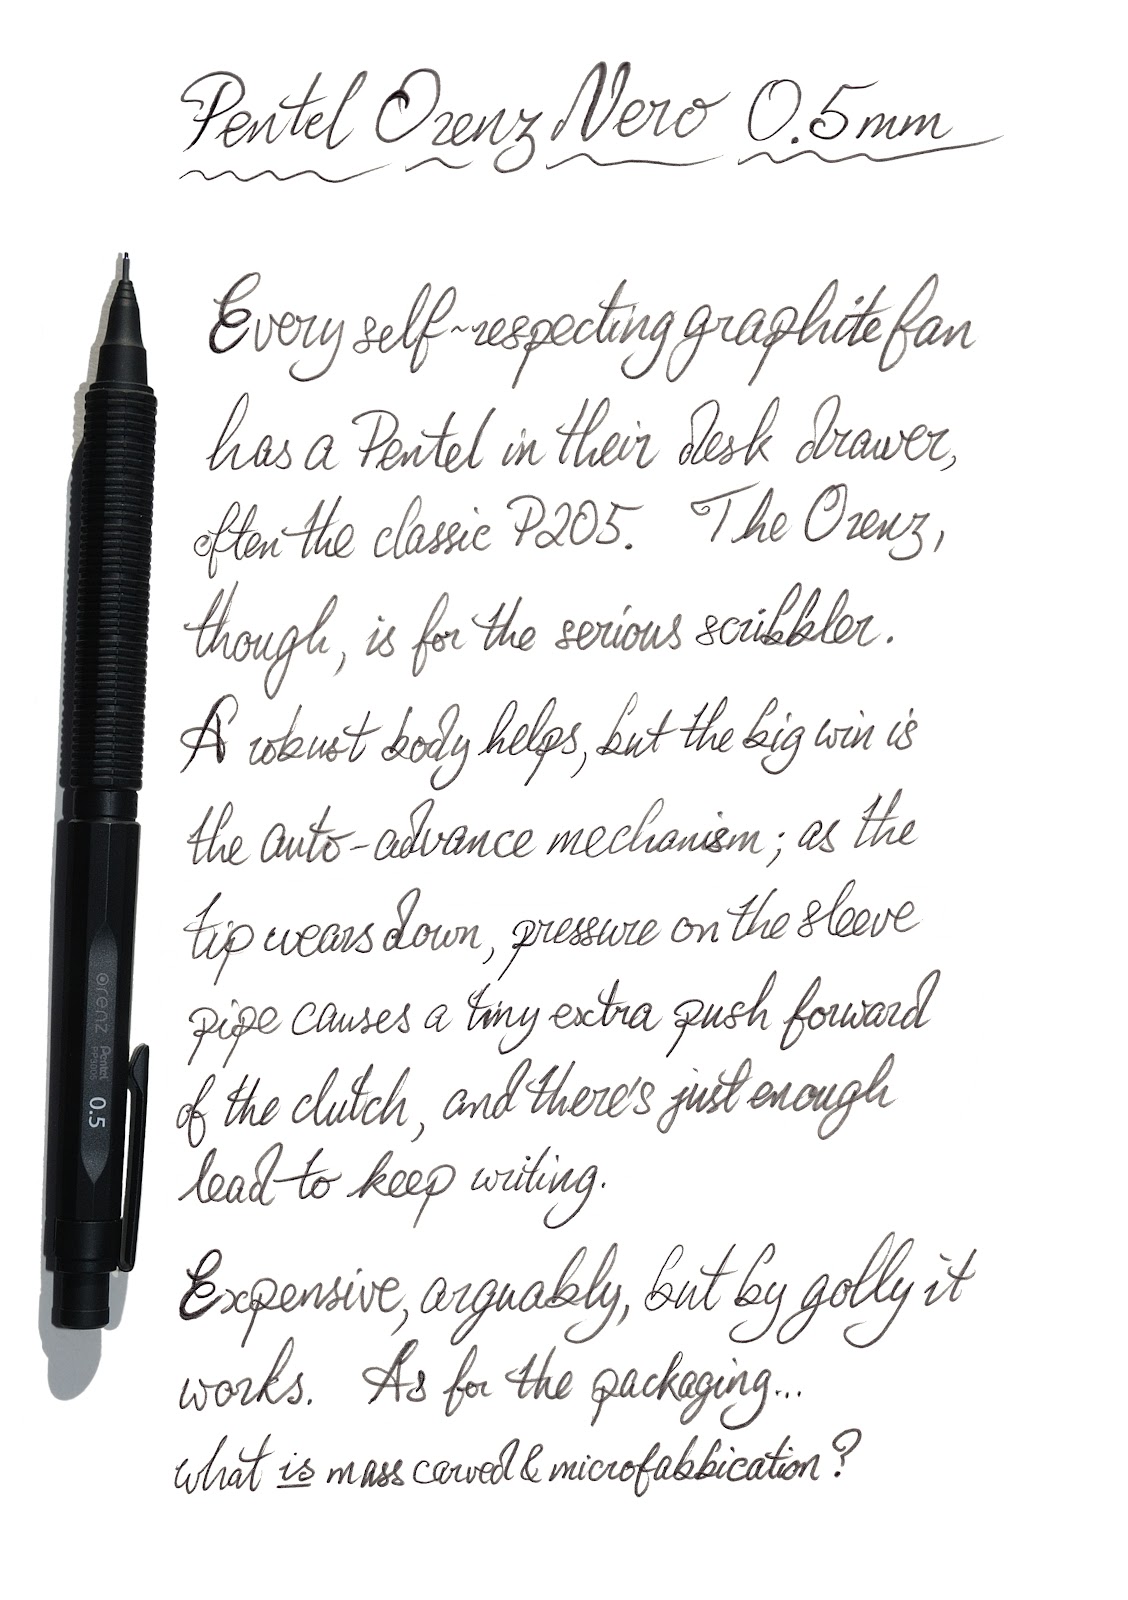 Pentel Orenz Nero 0.5mm
Every self-respecting graphite fan
has a Pentel in their desk drawer,
often the classic P205. The Orenz,
though, is for the serious scribbler.
A robust body helps, but the big win is
the auto-advance mechanism; as the
tip wears down, pressure on the sleeve
pipe causes a tiny extra push forward
of the clutch, and there's just enough
lead to keep writing.
Expensive, arguably, but by golly it
works. As for the packaging...
what is mass carved & microfabbication?
Orenz Pentel
PP3005
0.5